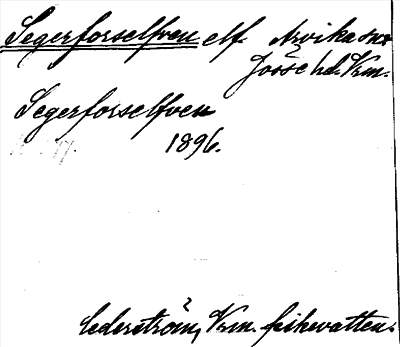 Segerforselfven elf. Arvika sn.
Jösse hd. Vrm.
Segerforselfven
1896.
Cederström, Vrm. fiskevatten.